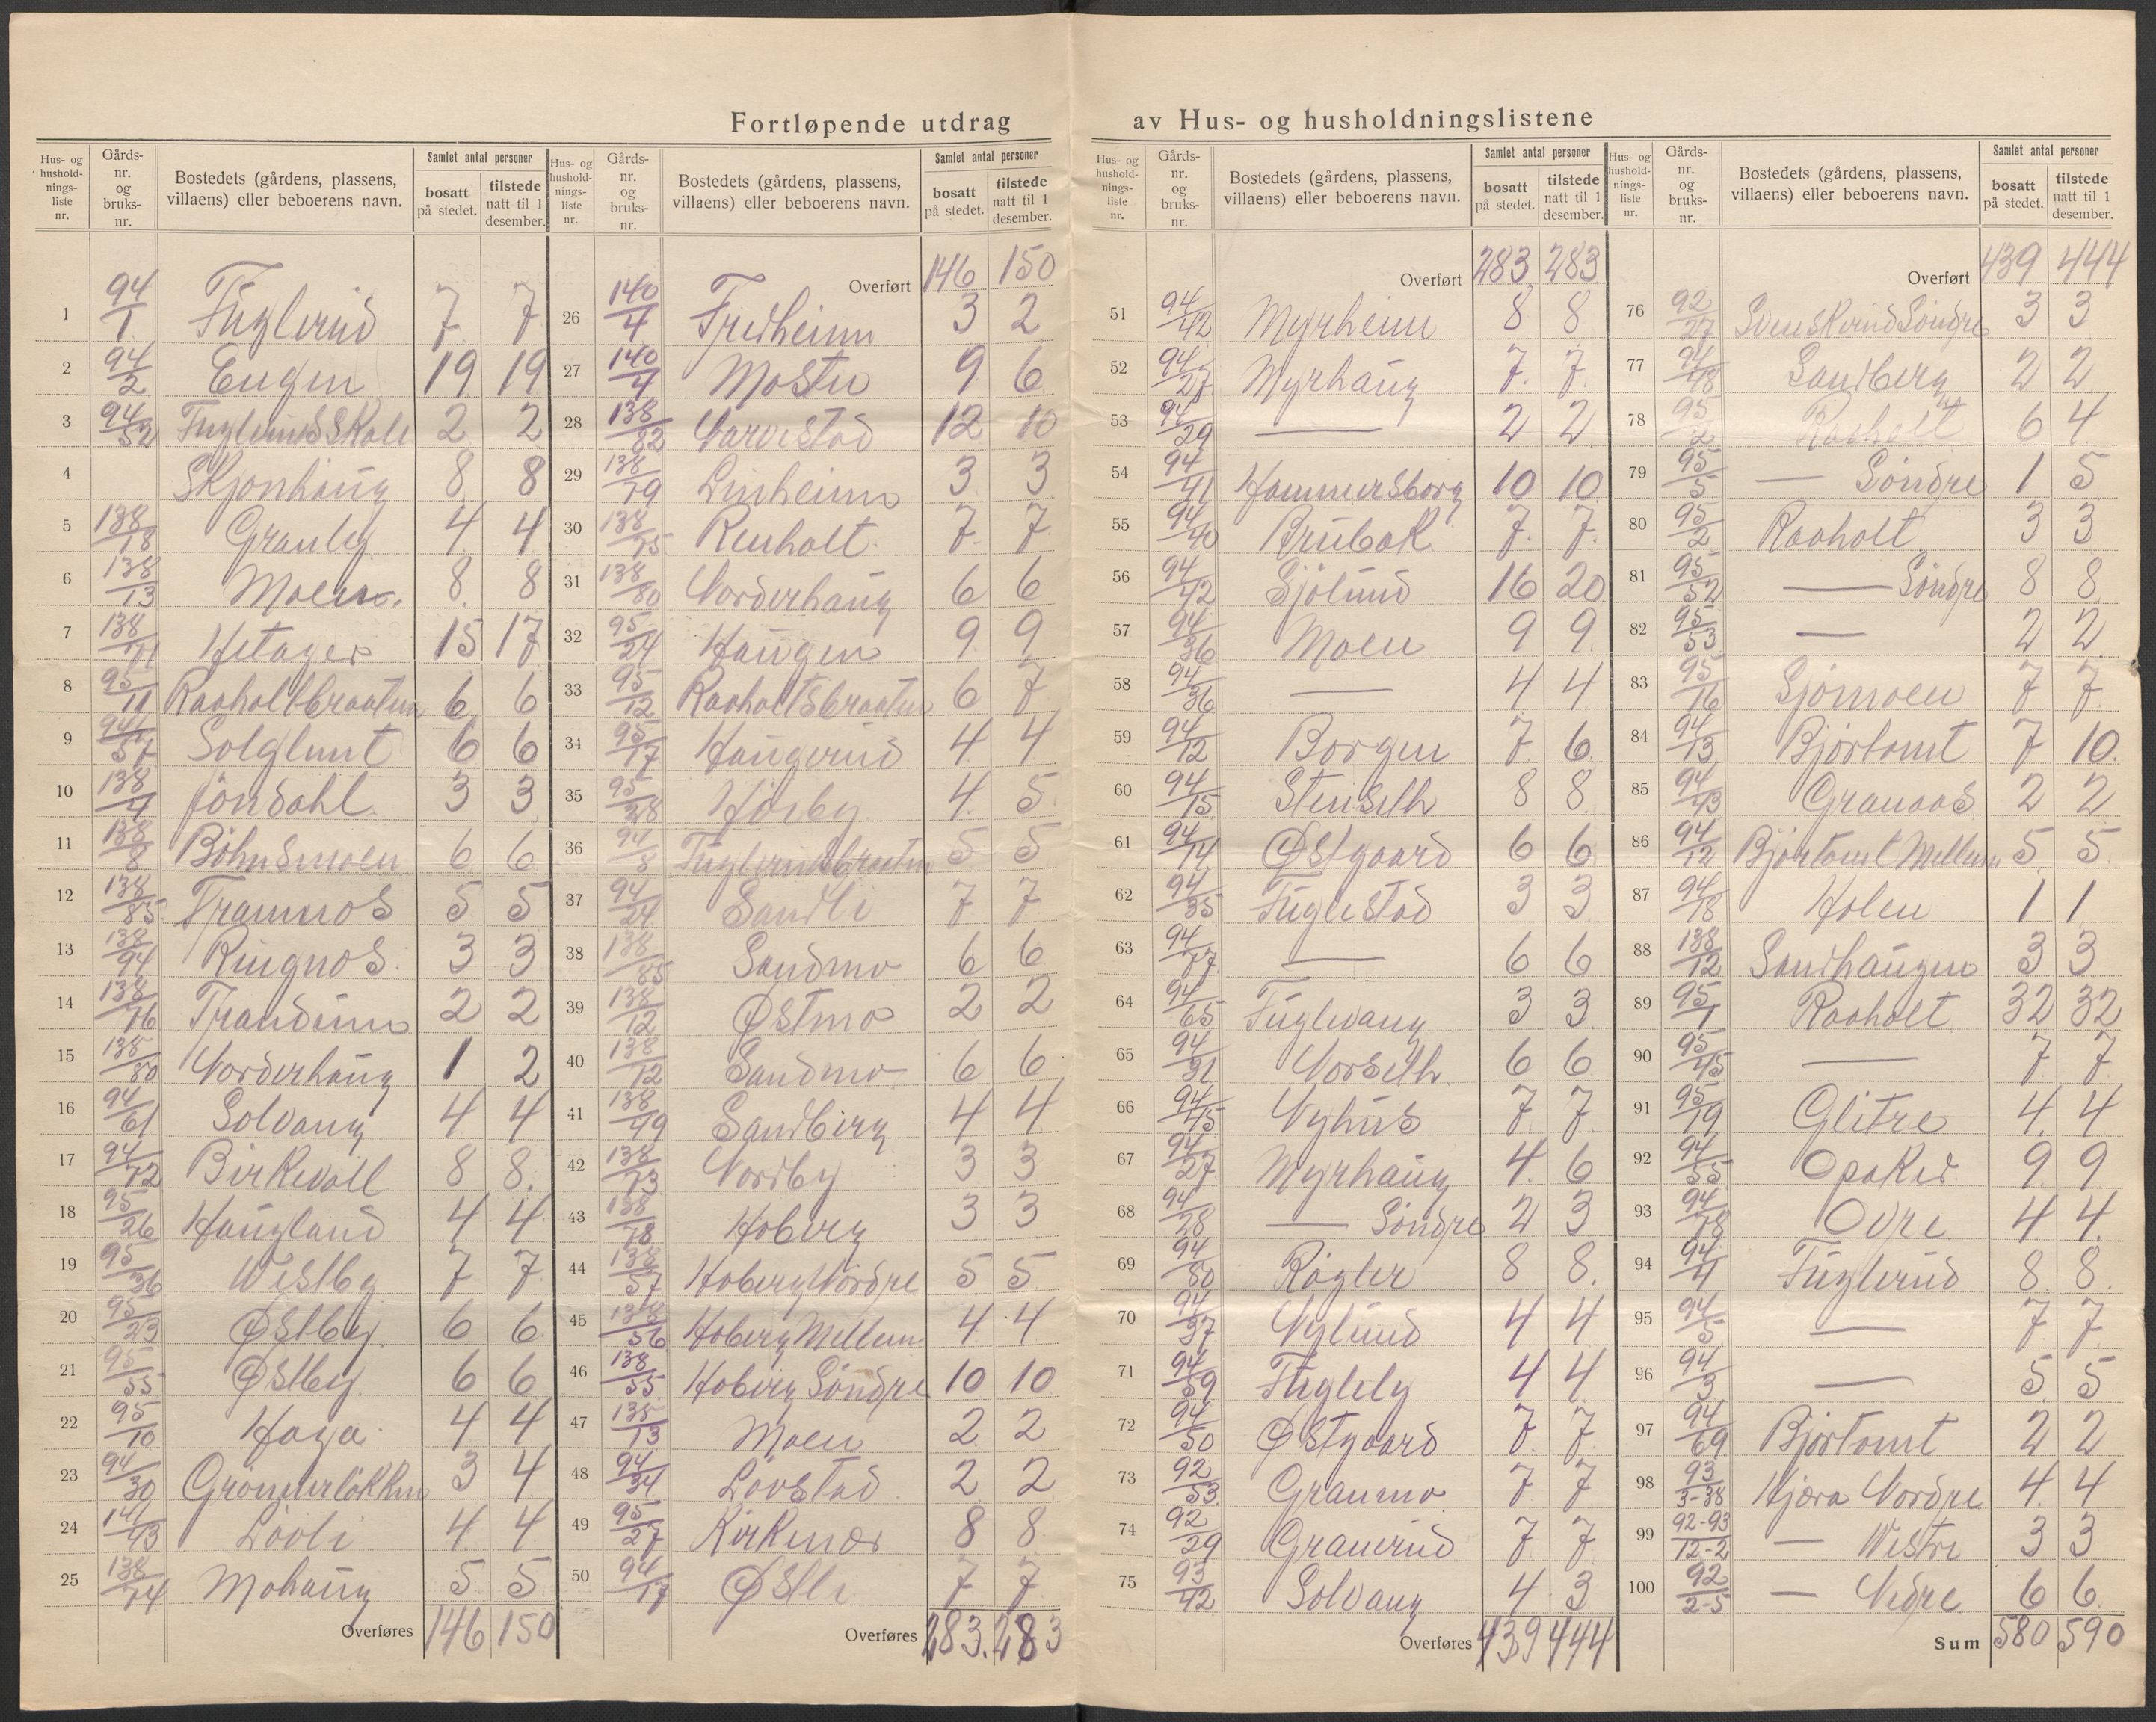 Fortløpende utdrag av Hus- og husholdningslistene
Hus- og hushold- nings- liste nr. | Gårds- nr. og bruks- nr. | Bostedets (gårdens, plassens, villaens) eller beboerens navn. | Samlet antal personer | bosatt på stedet. | tilstede natt til 1 desember.
1 94/1 Fuglerud 7 7
2 94/2 Engen 19 19
3 94/52 Fuglerud Skole 2 2
4 Skjonhaug 8 8
5 138/18 Granly 4 4
6 138/13 Moen 8 8
7 138/11 Hetager 15 17
8 95/11 Raaholtbraaten 6 6
9 94/57 Solglimt 6 6
10 138/4 Jöndahl 3 3
11 138/8 Böhnsmoen 6 6
12 138/85 Tranmos 5 5
13 138/94 Ringnos 3 3
14 138/76 Trandum 2 2
15 138/80 Nordenhaug 1 2
16 94/61 Solvang 4 4
17 94/72 Birkevoll 8 8
18 95/26 Haugland 4 4
19 95/36 Westby 7 7
20 95/23 Østby 6 6
21 95/55 Østby 6 6
22 95/10 Haga 4 4
23 94/30 Grönnerlökken 3 4
24 141/43 Lövli 4 4
25 138/74 Mohaug 5 5
Overføres 146 150
Hus- og hushold- nings- liste nr. | Gårds- nr. og bruks- nr. | Bostedets (gårdens, plassens, villaens) eller beboerens navn. | Samlet antal personer | bosatt på stedet. | tilstede natt til 1 desember.
Overført 146 150
26 140/4 Fredheim 3 2
27 140/4 Mostu 9 6
28 138/82 Varvestad 12 10
29 138/19 Linheim 3 3
30 138/75 Renholt 7 7
31 138/80 Norderhaug 6 6
32 95/24 Haugen 9 9
33 95/12 Raaholtsbraaten 6 7
34 95/17 Haugerud 4 4
35 95/28 Höiby 4 5
36 94/8 Fuglerudbraaten 5 5
37 94/24 Sandli 7 7
38 138/85 Sandmo 6 6
39 138/12 Østmo 2 2
40 138/12 Sandmo 6 6
41 138/49 Sandberg 4 4
42 138/73 Nordby 3 3
43 138/78 Hoberg 3 3
44 138/57 Hoberg Nordre 5 5
45 138/56 Hoberg Mellem 4 4
46 138/55 Hoberg Söndre 10 10
47 138/13 Moen 2 2
48 94/34 Lövstad 2 2
49 95/27 Kirkmoe 8 8
50 94/17 Østli 7 7
Overføres 283 283
Hus- og hushold- nings- liste nr. | Gårds- nr. og bruks- nr. | Bostedets (gårdens, plassens, villaens) eller beboerens navn. | Samlet antal personer | bosatt på stedet. | tilstede natt til 1 desember.
Overført 283 283
51 94/42 Myrheim 8 8
52 94/27 Myrhaug 7 7
53 94/29 — 2 2
54 94/41 Hammersborg 10 10
55 94/40 Brubak 7 7
56 94/42 Sjölund 16 20
57 94/36 Moen 9 9
58 94/36 — 4 4
59 94/12 Borgen 7 6
60 94/15 Stenseth 8 8
61 94/14 Østgaard 6 6
62 94/35 Fuglestad 3 3
63 94/77 — 6 6
64 94/65 Fuglevang 3 3
65 94/31 Norseth 6 6
66 94/45 Nyhus 7 7
67 94/27 Myrhaug 4 6
68 94/28 — Söndre 2 3
69 94/80 Rögler 8 8
70 94/37 Nylund 4 4
71 94/59 Fuglely 4 4
72 94/50 Østgaard 7 7
73 92/53 Granmo 7 7
74 92/29 Granerud 7 7
75 93/42 Solvang 4 3
Overføres 439 444
Hus- og hushold- nings- liste nr. | Gårds- nr. og bruks- nr. | Bostedets (gårdens, plassens, villaens) eller beboerens navn. | Samlet antal personer | bosatt på stedet. | tilstede natt til 1 desember.
Overført 439 444
76 92/27 Svenskerud Söndre 3 3
77 94/48 Sandberg 2 2
78 95/2 Raaholt 6 4
79 95/5 — Söndre 1 5
80 95/2 Raaholt 3 3
81 95/52 — Söndre 8 8
82 95/53 — 2 2
83 95/16 Sjömoen 7 7
84 94/13 Björtomt 7 10
85 94/43 Granaas 2 2
86 94/12 Björtomt Mellem 5 5
87 94/18 Holen 1 1
88 138/12 Sandhaugen 3 3
89 95/1 Raaholt 32 32
90 95/45 — 7 7
91 95/19 Glitre 4 4
92 94/55 Opaker 9 9
93 94/78 Ovre 4 4
94 94/4 Fuglerud 8 8
95 94/5 — 7 7
96 94/3 — 5 5
97 94/69 Björtomt 2 2
98 93/3-38 Hjera Nordre 4 4
99 92-93/12-2 — Westre 3 3
100 92/2-5 — Nedre 6 6
Sum 580 590